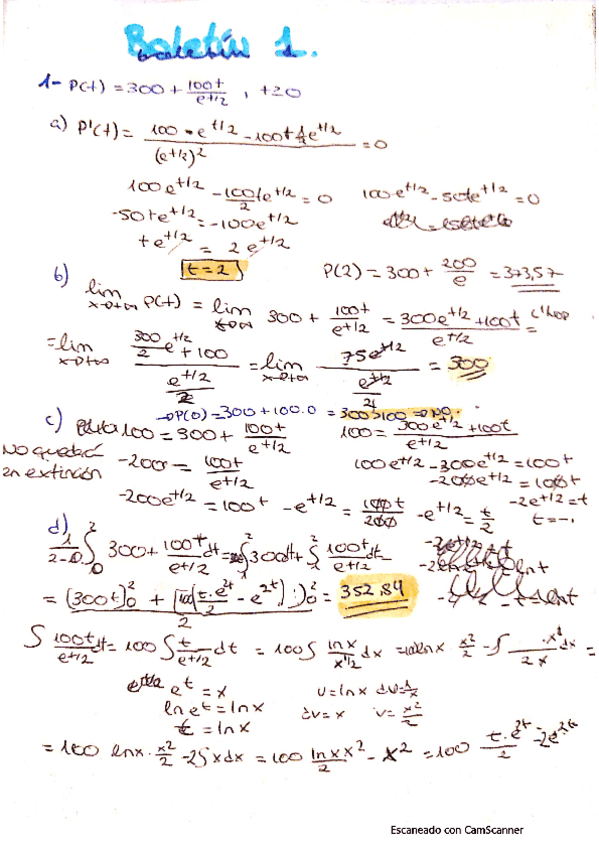 Boletín 1.
1- P(t) = 300 + 100t/e^t/2 , t≥0
a) P'(t) = (100 · e^t/2 - 100t ½e^t/2)/(e^t/2)² = 0
100e^t/2 - 100te^t/2/2 = 0 100e^t/2 - 50te^t/2 = 0
-50te^t/2 = -100e^t/2
te^t/2 = 2e^t/2
t = 2 P(2) = 300 + 200/e = 373,57
b) lim x→+∞ P(t) = lim t→∞ 300 + 100t/e^t/2 = (300e^t/2 + 100t)/e^t/2 = L'hop
= lim x→+∞ (300/2 e^t/2 + 100)/(e^t/2/2) = lim x→+∞ 75e^t/2/(e^t/2/2) = 300
→ P(0) = 300 + 100·0 = 300>100 ⇒ NO.
c) 100 = 300 + 100t/e^t/2 100 = (300e^t/2 + 100t)/e^t/2
No quedará en extinción
-200 = 100t/e^t/2 100e^t/2 - 300e^t/2 = 100t
-200e^t/2 = 100t
-200e^t/2 = 100t - e^t/2 = 100t/200 -e^t/2 = t/2 -2e^t/2 = t
t = -
d) 1/2-0 ∫₀² 300 + 100t/e^t/2 dt = ∫₀² 300dt + ∫₀² 100t/e^t/2 dt
= 352,84
∫ 100t/e^t/2 dt = 100 ∫ t/e^t/2 dt = 100 ∫ lnx/x^1/2 dx
e^t = x u = lnx du = 1/x
ln e^t = lnx dv = x v = x²/2
t = lnx
= 100 lnx · x²/2 - 25 x dx = 100 lnx x²/2 - x² = 100 t·e^2t/2
Escaneado con CamScanner